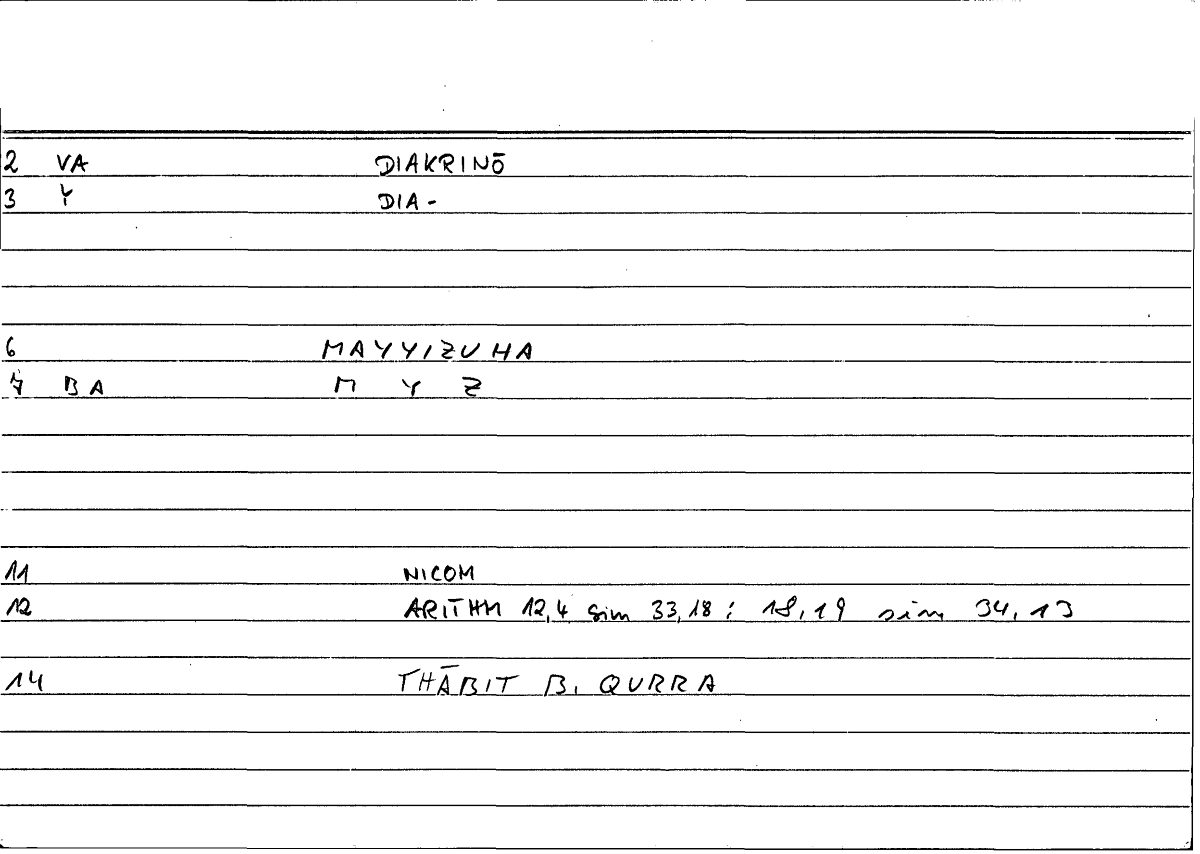 2 VA DIAKRINŌ
3 Y DIA-
6 MAYYIZUHA
7 BA M Y Z
11 NICOM
12 ARITHM 12,4 sim 33,18 : 18,19 sim 34,13
14 THĀBIT B. QURRA